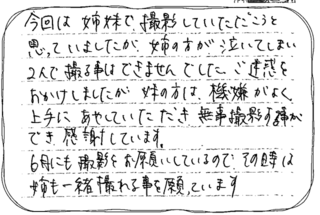 今回は姉妹で、撮影していただこうと
思っていましたが、姉の方が泣いてしまい
2人で撮る事はできませんでした。ご迷惑を
おかけしましたが 妹の方は、機嫌がよく、
上手に あやしていただき 無事撮影する事が
でき 感謝しています。
6月にも 撮影をお願いしているので その時は
姉も一緒に撮れる事を願っています